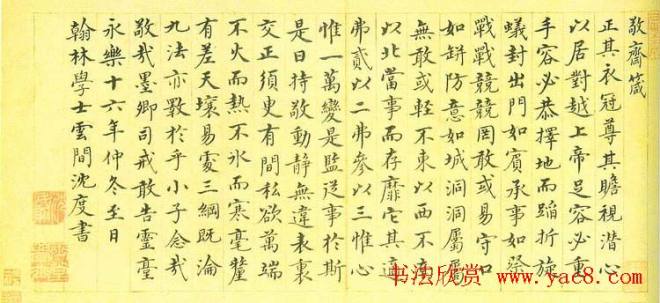 敬齋箴
正其衣冠尊其瞻視潛心
以居對越上帝足容必重
手容必恭擇地而蹈折旋
蟻封出門如賓承事如祭
戰戰兢兢罔敢或易守口
如缾防意如城洞洞屬屬
無敢或輕不東以西不南
以北當事而存靡它其適
弗貳以二弗參以三惟心
惟一萬變是監從事於斯
是曰持敬動靜無違表裏
交正須臾有間私欲萬端
不火而熱不冰而寒毫釐
有差天壤易處三綱既淪
九法亦斁於乎小子念哉
敬哉墨卿司戒敢告靈臺
永樂十六年仲冬至日
翰林學士雲間沈度書
书法欣赏 www.yac8.com